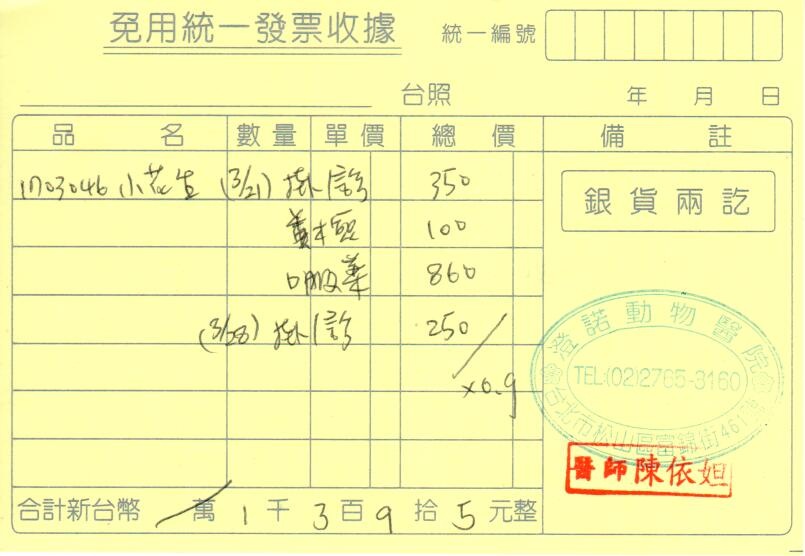 免用統一發票收據 統一編號
台照 年 月 日
品名 數量 單價 總價 備註
1703046 小花生 (3/21) 掛/診 350
銀貨兩訖
100
口服藥 860
(3/28) 掛/診 250
x0.9
澄諾動物醫院
TEL:(02)2765-3160
台北市松山區富錦街461號
醫師陳依妲
合計新台幣 萬 1 千 3 百 9 拾 5 元整